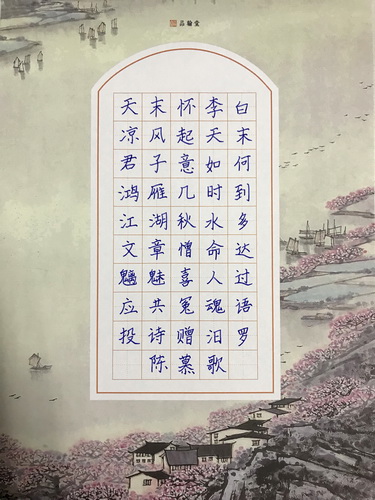 品翰堂
天末怀李白
凉风起天末
君子意如何
鸿雁几时到
江湖秋水多
文章憎命达
魑魅喜人过
应共冤魂语
投诗赠汨罗
陈慕歌